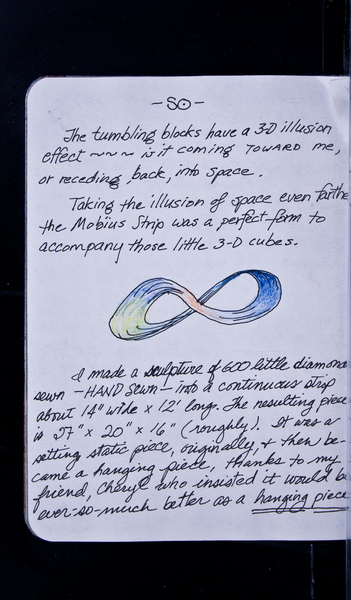 - SO -
The tumbling blocks have a 3-D illusion
effect ~~~ is it coming TOWARD me,
or receding back, into space.
Taking the illusion of space even farthe
the Mobius Strip was a perfect form to
accompany those little 3-D cubes.
I made a sculpture of 600 little diamond
sewn - HAND sewn - into a continuous strip
about 14" wide x 12' long. The resulting piece
is 57" x 20" x 16" (roughly). It was a
setting static piece, originally, & then be-
came a hanging piece, thanks to my
friend, Cheryl who insisted it would be
ever-so-much better as a hanging piece